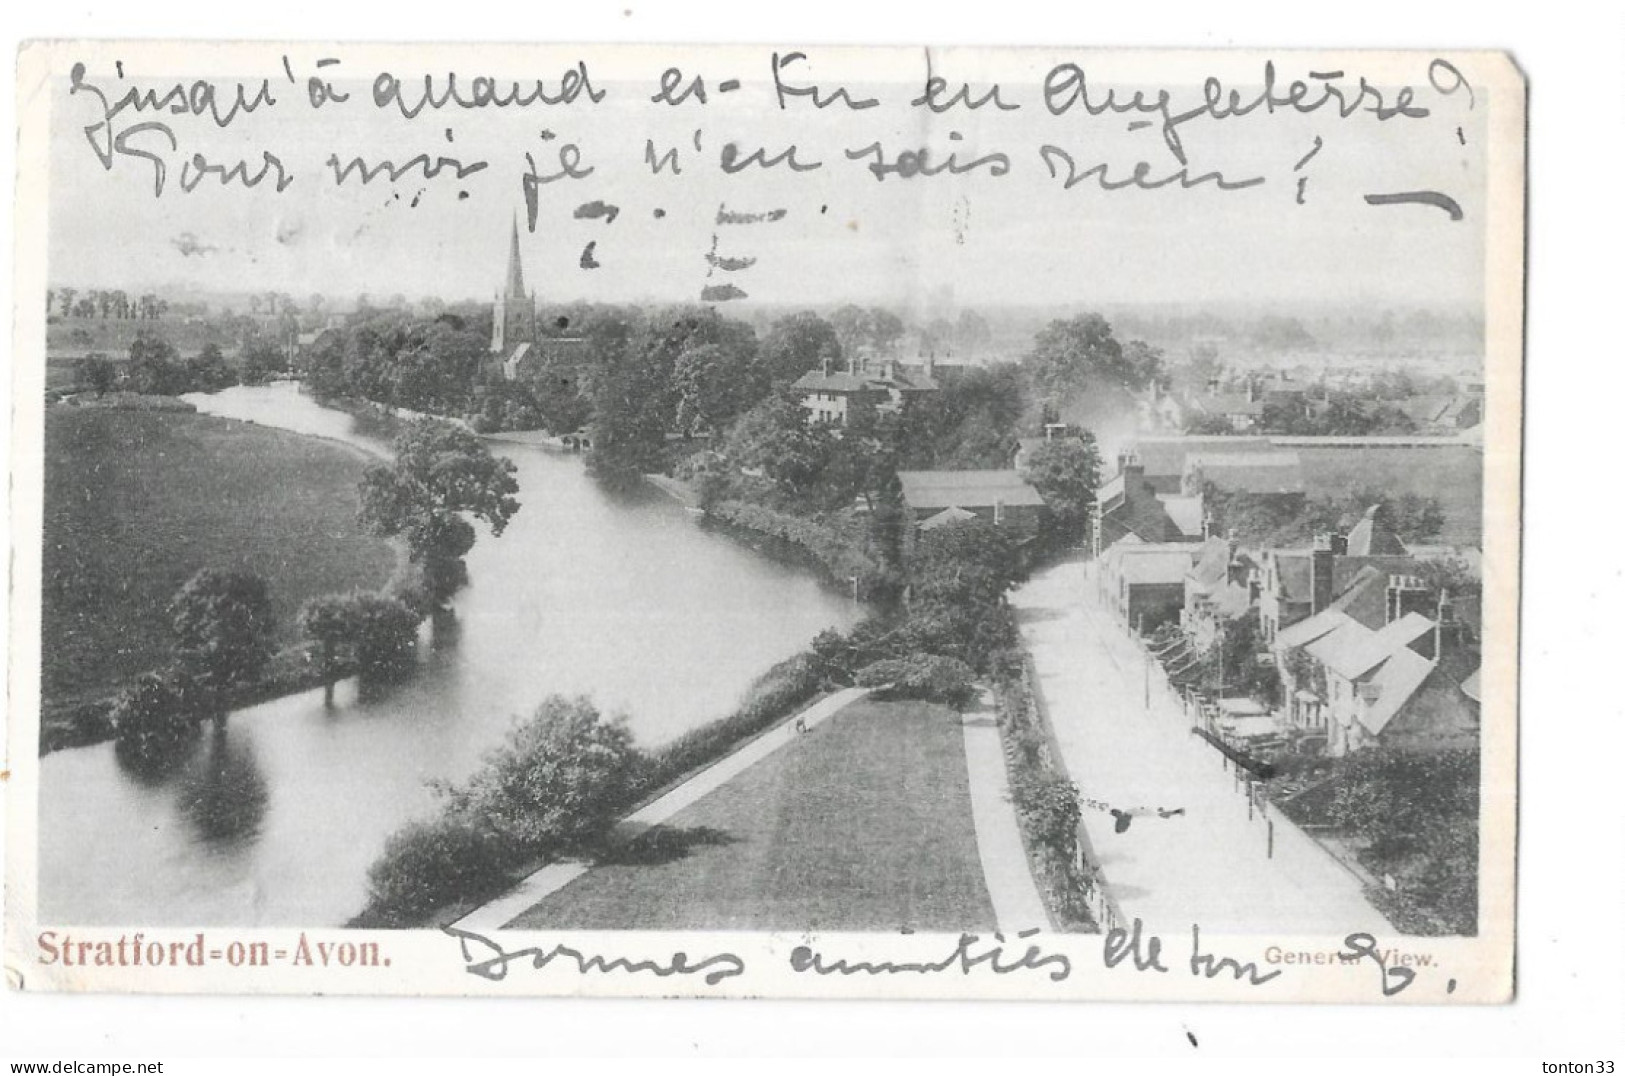 Jusqu'à quand es-tu en Angleterre?
Pour moi je n'en sais rien! —
Stratford=on=Avon.
Bonnes amitiés de ton
General View.
delcampe.net
tonton33